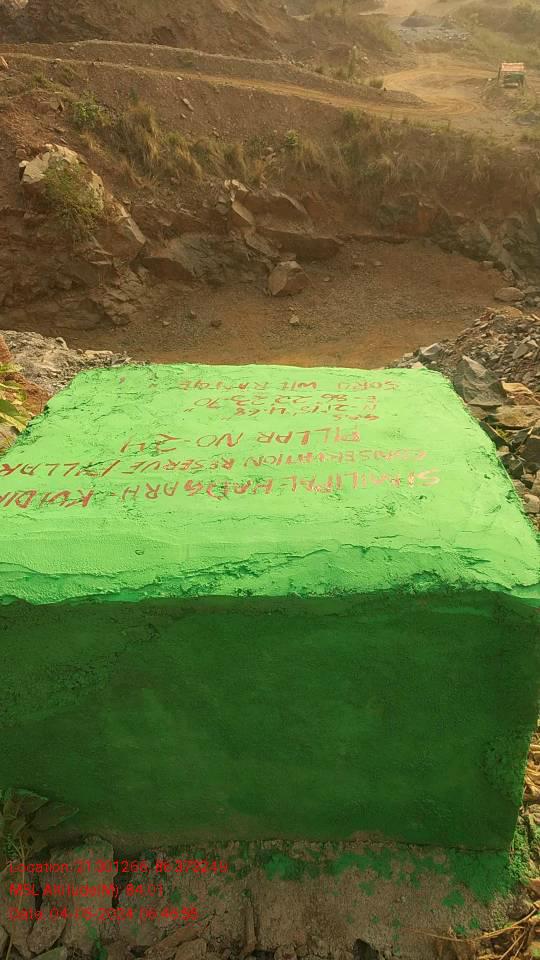 SIMILIPAL HADGARH - KULDIH
CONSERVATION RESERVE / PILLAR
PILLAR NO-24
GPS
N-21°15'41.68"
E-86°22'23.70"
SORO WIL RANGE
Location: 21.001266, 86.372249
MSL Altitude(M): 64.01
Date: 04-06-2024 06:46:56